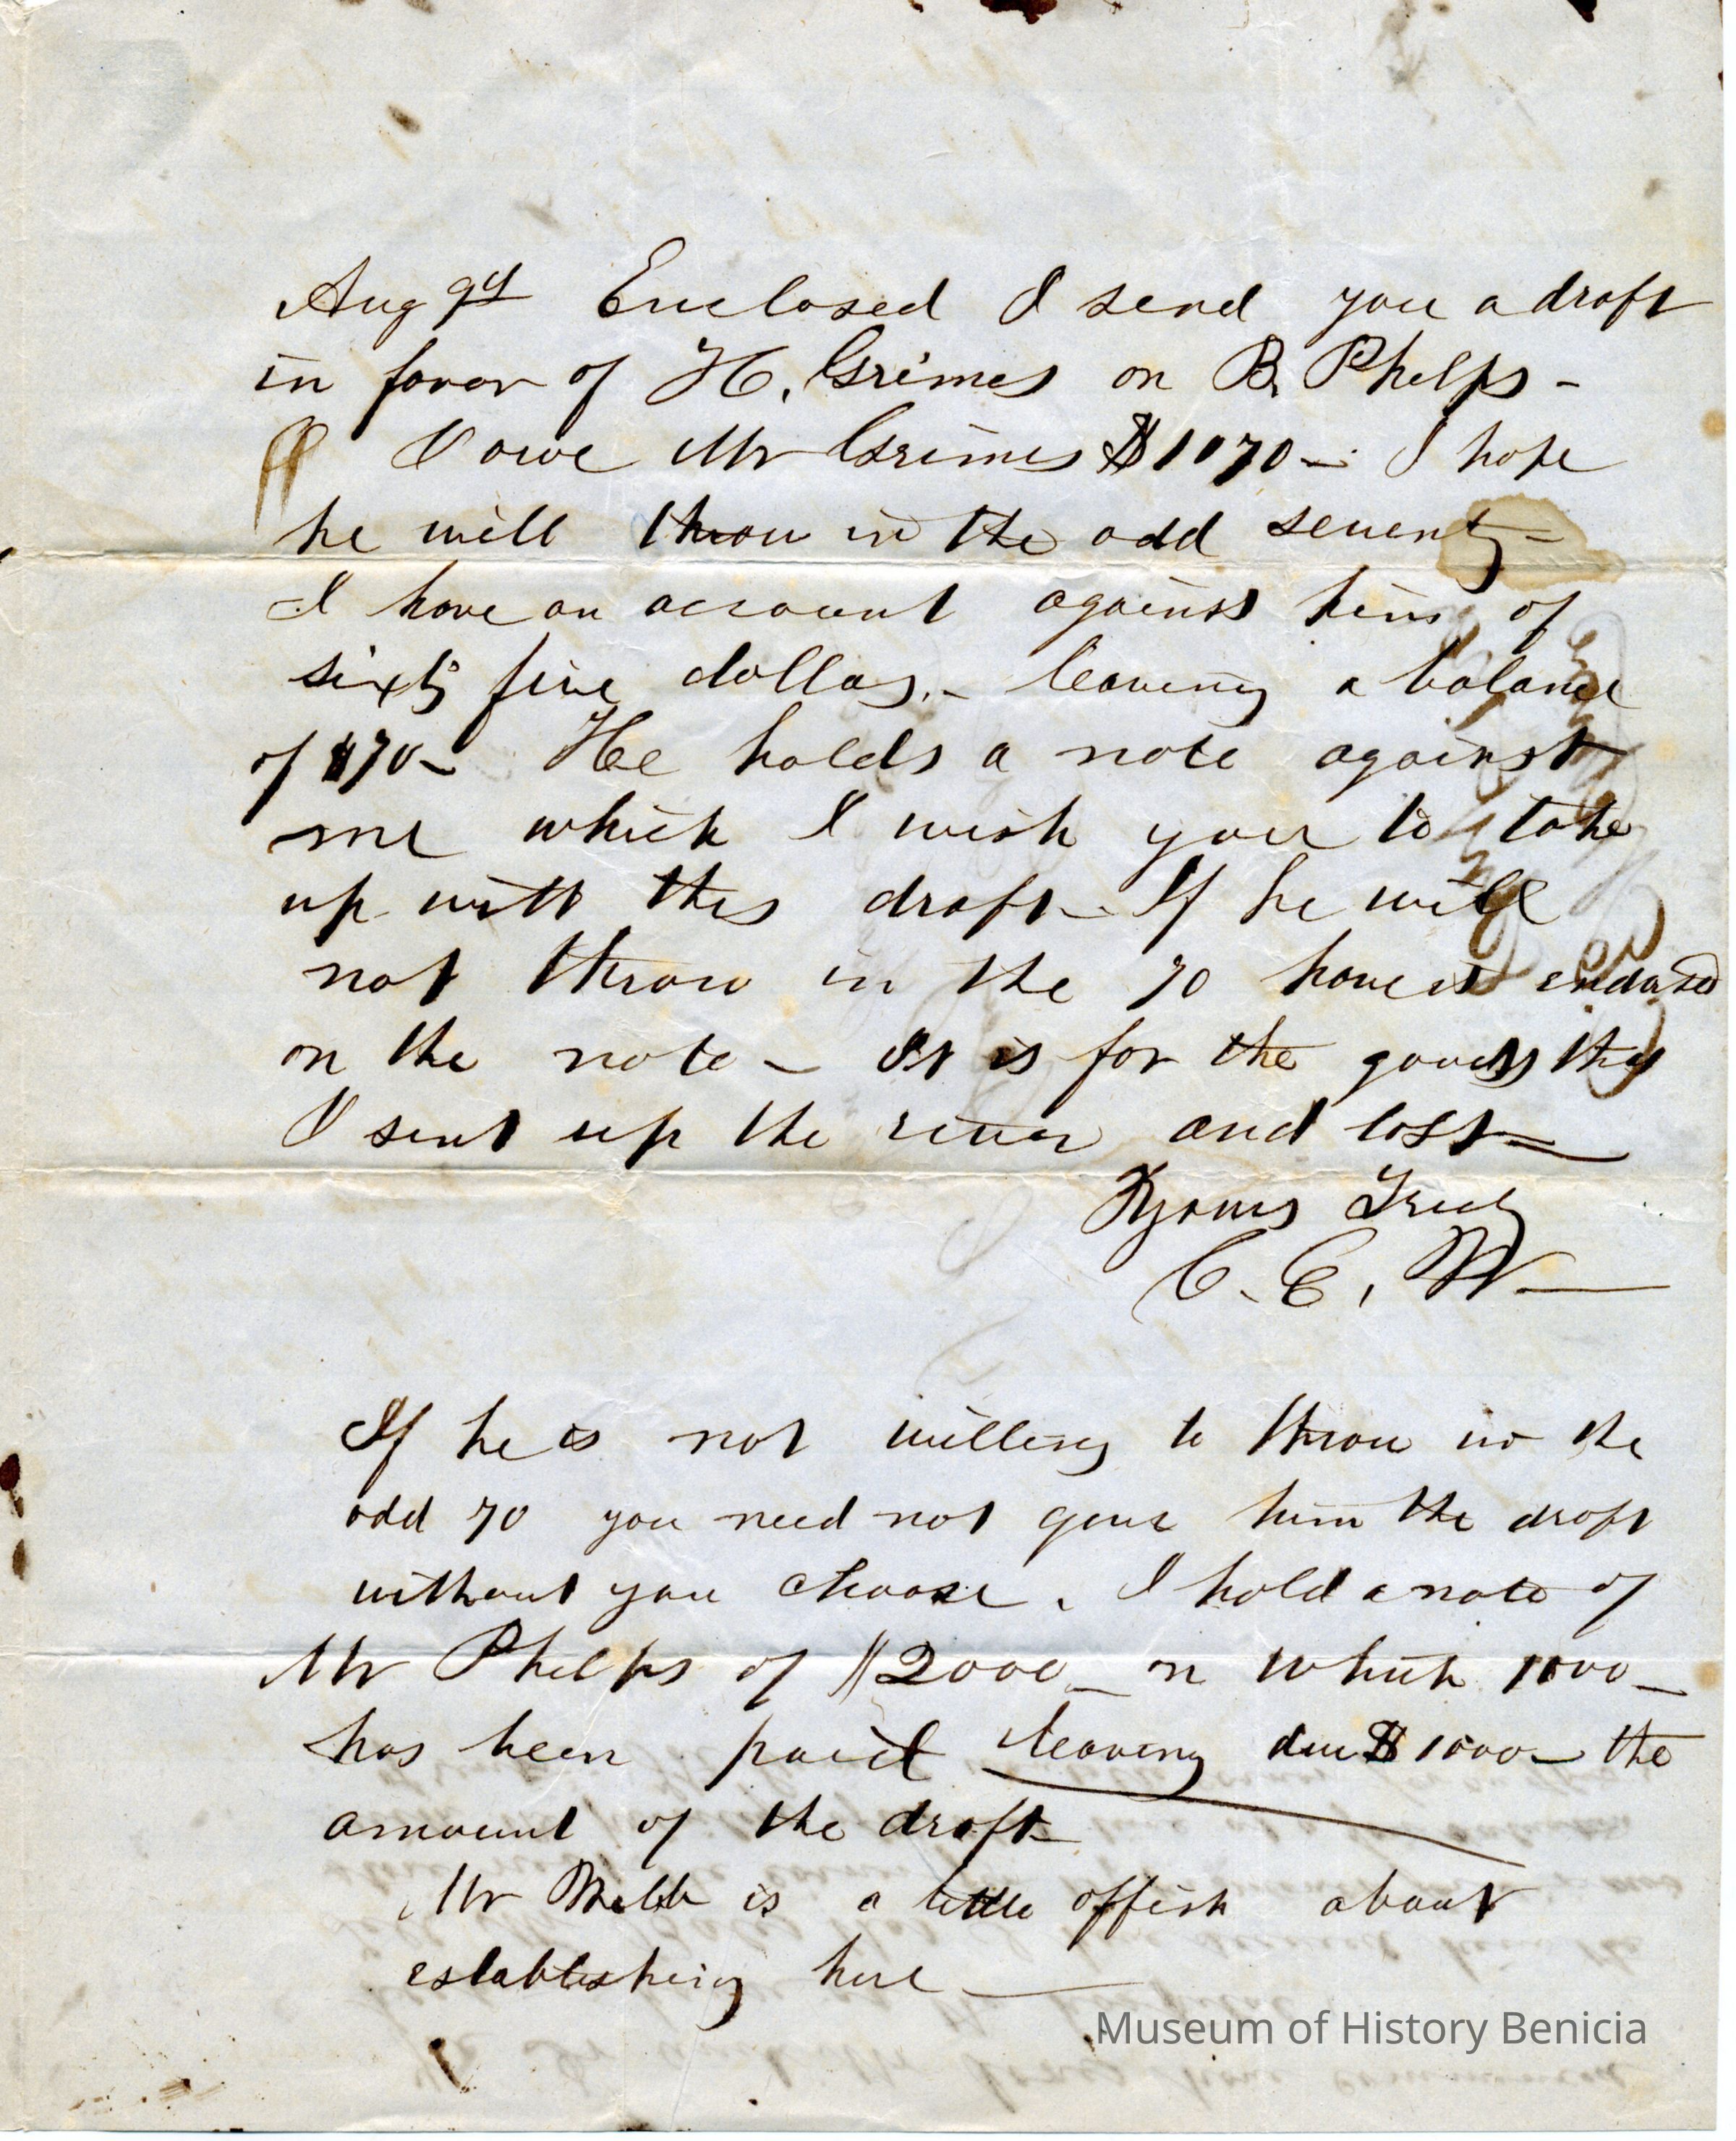 Aug 9th Enclosed I send you a draft
in favor of H. Grimes on B. Phelps -
I owe Mr Grimes $1070 - I hope
he will throw in the odd seventy -
I have an account against him of
sixty five dollars. - leaving a balance
of $70 - He holds a note against
me which I wish you to take
up with this draft - If he will
not throw in the 70 have it endorsed
on the note - It is for the goods that
I sent up the river and lost -
yours Truly
C. E. W -
If he is not willing to throw in the
odd 70 you need not give him the draft
without you choose. I hold a note of
Mr Phelps of $2000 - on which 1000 -
has been paid leaving due $1000 - the
amount of the draft -
Mr Webb is a little offish about
establishing here -
Museum of History Benicia